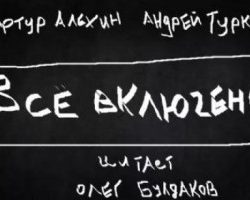 АРТУР АЛЕХИН АНДРЕЙ ТУРК
ВСЁ ВКЛЮЧЕН
ЧИТАЕТ
ОЛЕГ БУЛДАКОВ